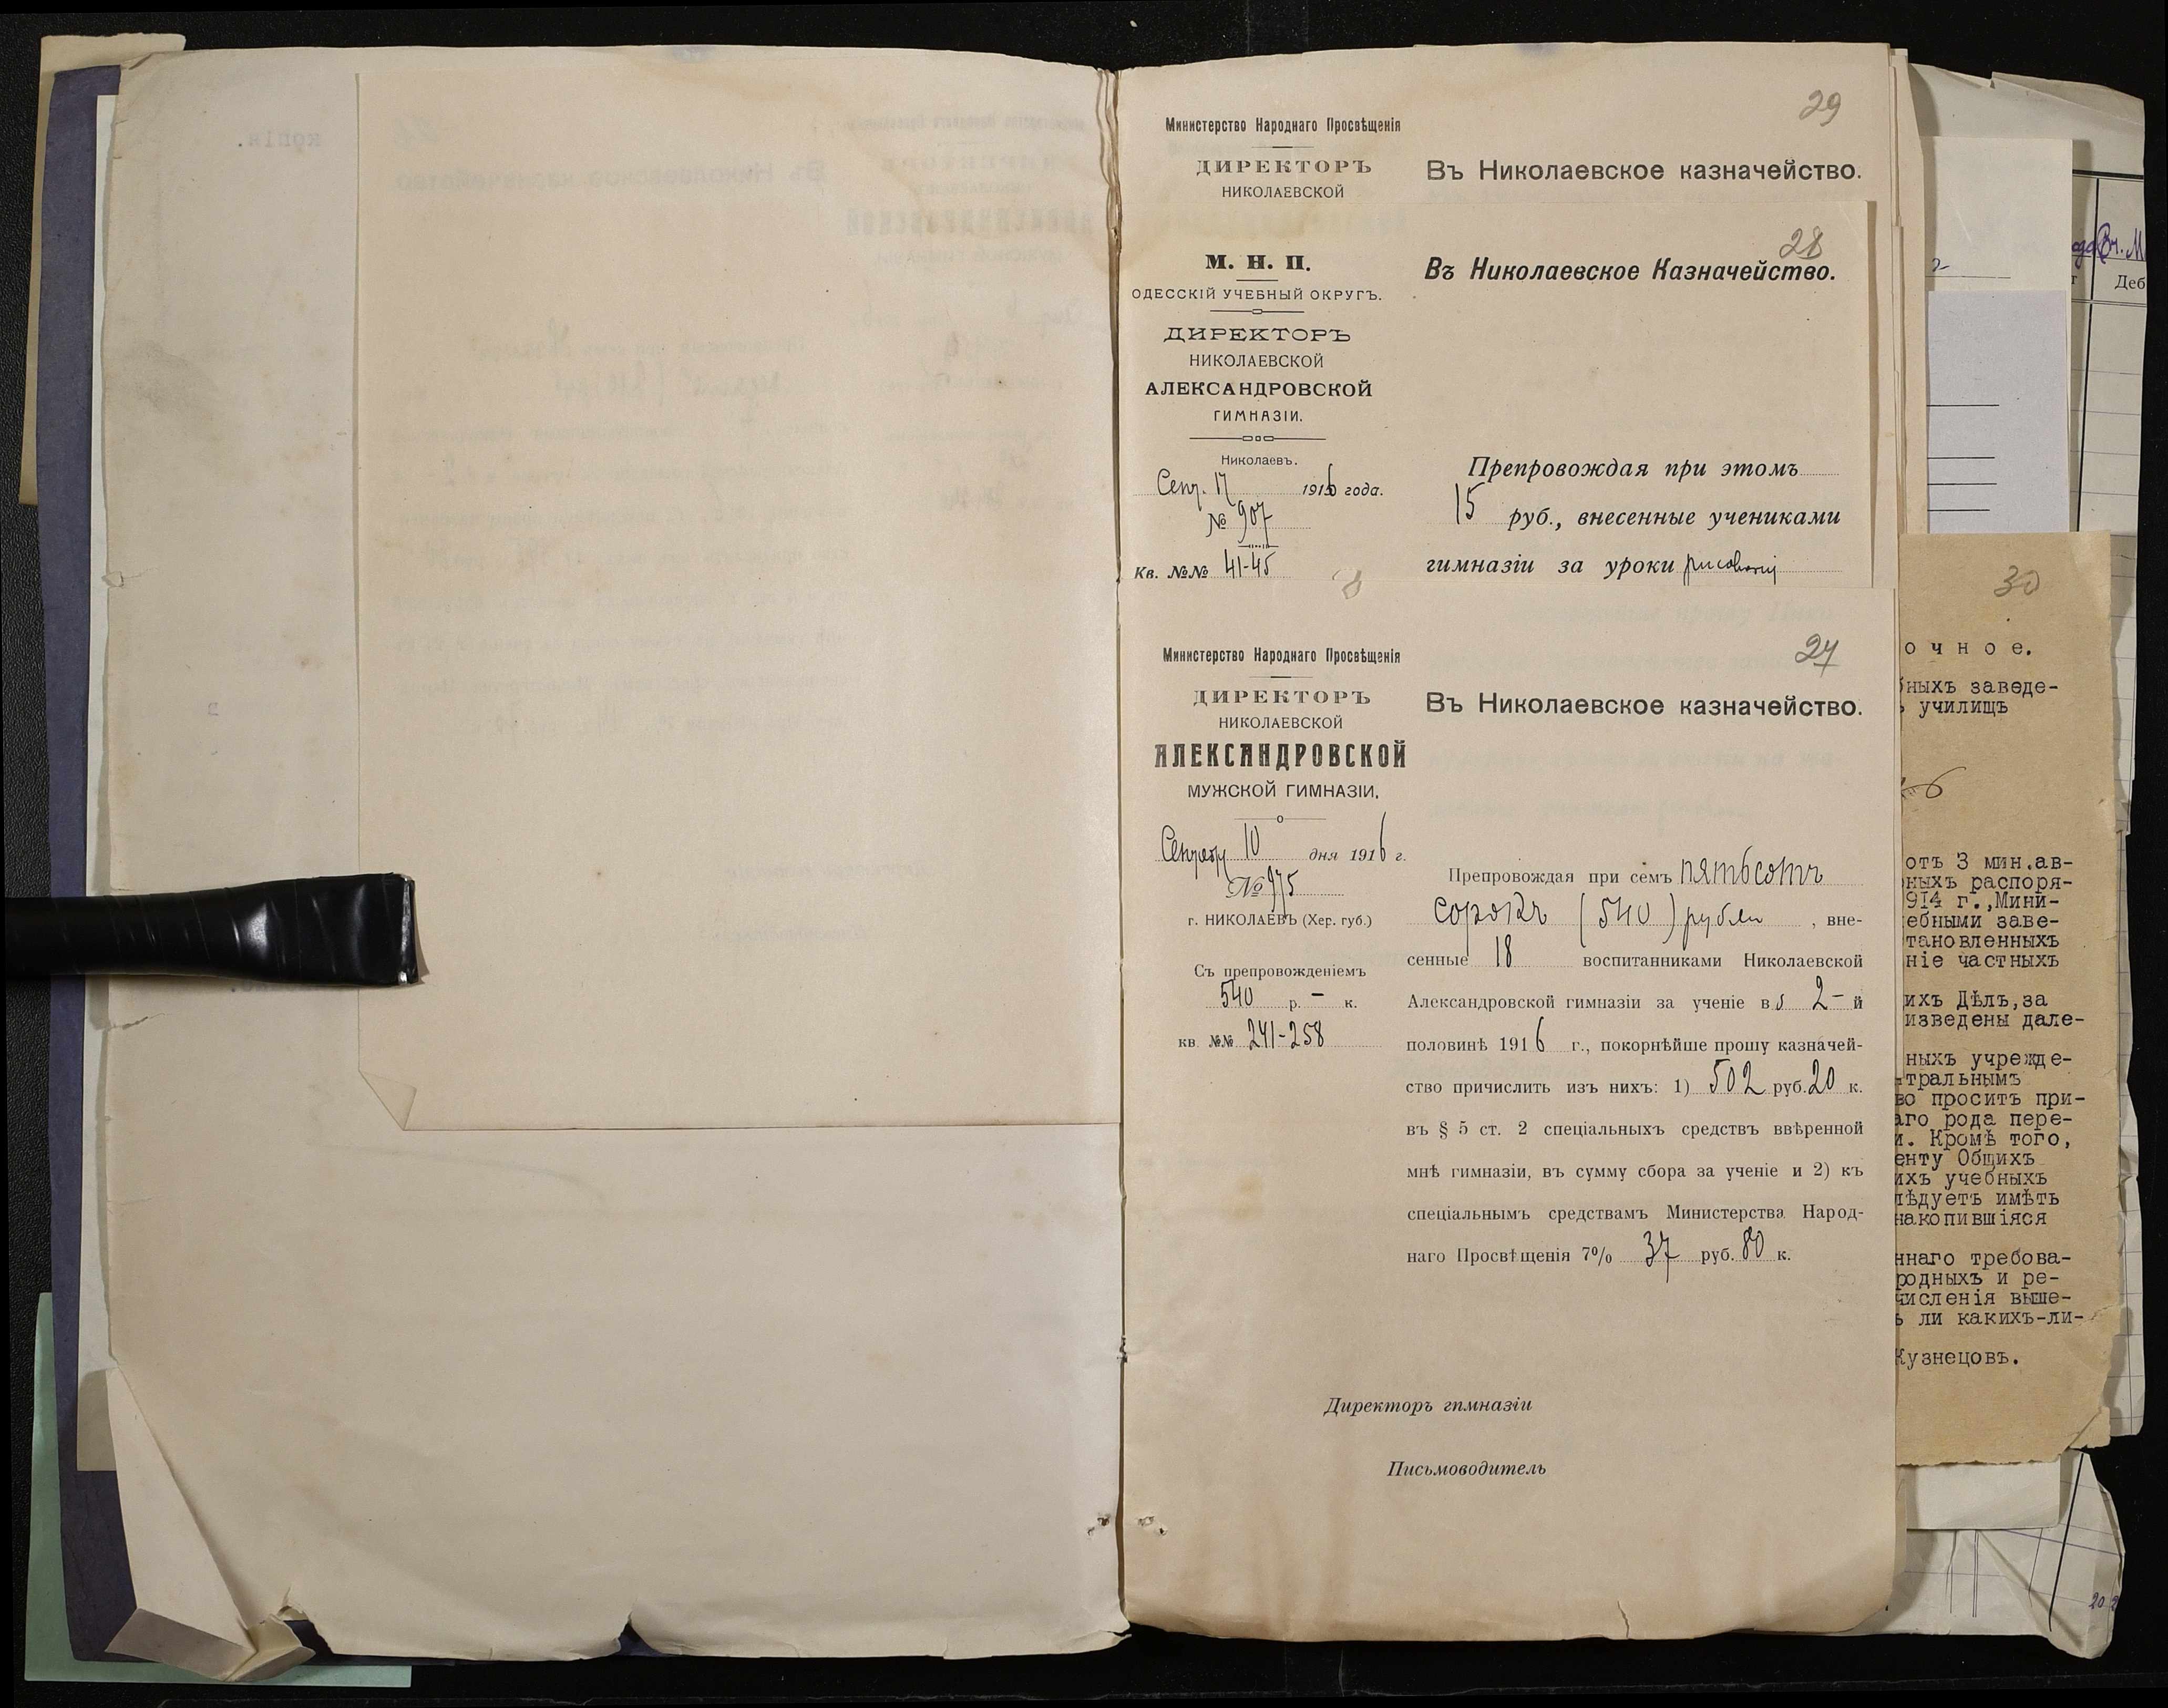 29
Министерство Народнаго Просвѣщенія
ДИРЕКТОРЪ
НИКОЛАЕВСКОЙ
Въ Николаевское казначейство.
28
М. Н. П.
ОДЕССКІЙ УЧЕБНЫЙ ОКРУГЪ.
ДИРЕКТОРЪ
НИКОЛАЕВСКОЙ
АЛЕКСАНДРОВСКОЙ
ГИМНАЗІИ.
Николаевъ.
Сент. 17 1916 года.
№ 907
Кв. №№ 41-45
Въ Николаевское Казначейство.
Препровождая при этомъ
15 руб., внесенные учениками
гимназіи за уроки рисованія
27
Министерство Народнаго Просвѣщенія
ДИРЕКТОРЪ
НИКОЛАЕВСКОЙ
АЛЕКСАНДРОВСКОЙ
МУЖСКОЙ ГИМНАЗІИ.
10 дня 1916 г.
№ 975
г. НИКОЛАЕВЪ (Хер. губ.)
Съ препровожденіемъ
540 р. — к.
кв. №№ 241-258
Въ Николаевское казначейство.
Препровождая при семъ пятьсотъ
сорокъ (540) рубли, вне-
сенные 18 воспитанниками Николаевской
Александровской гимназіи за ученіе въ 2-й
половинѣ 1916 г., покорнѣйше прошу казначей-
ство причислить изъ нихъ: 1) 502 руб. 20 к.
въ § 5 ст. 2 спеціальныхъ средствъ ввѣренной
мнѣ гимназіи, въ сумму сбора за ученіе и 2) къ
спеціальнымъ средствамъ Министерства Народ-
наго Просвѣщенія 7% 37 руб. 80 к.
Директоръ гимназіи
Письмоводитель
30
очное.
ныхъ заведе-
училищъ
отъ 3 мин.ав-
ныхъ распоря-
914 г.,Мини-
ебными заве-
тановленныхъ
ніе частныхъ
ихъ Дѣлъ,за
изведены дале-
ныхъ учрежде-
тральнымъ
во проситъ при-
аго рода пере-
и. Кромѣ того,
енту Общихъ
ихъ учебныхъ
лѣдуетъ имѣть
накопившіяся
ннаго требова-
родныхъ и ре-
численія выше-
ли какихъ-ли-
Кузнецовъ.
Деб